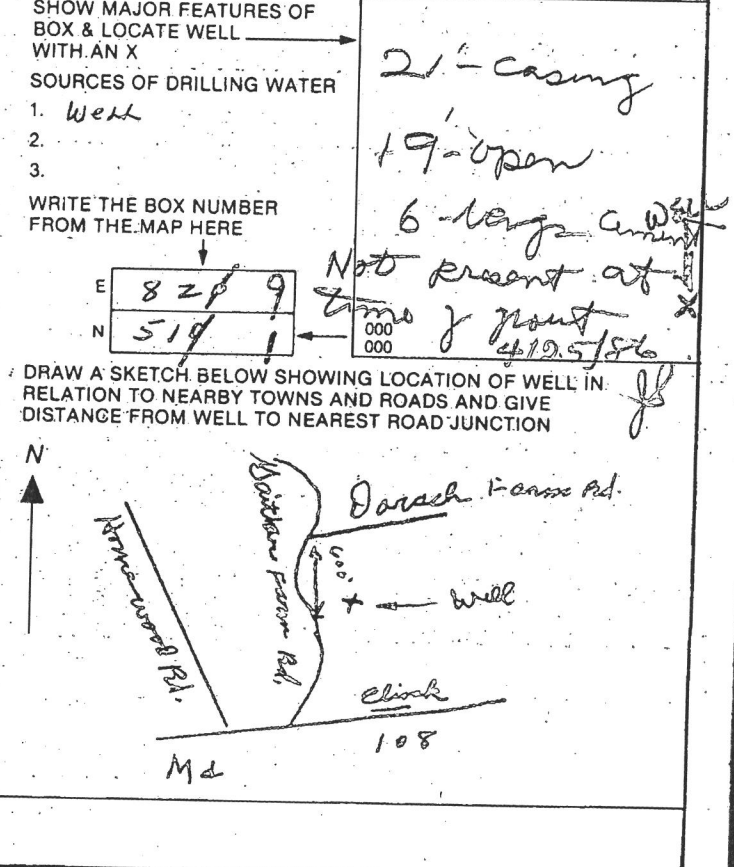 SHOW MAJOR FEATURES OF
BOX & LOCATE WELL
WITH AN X
SOURCES OF DRILLING WATER
1. Well
2.
3.
WRITE THE BOX NUMBER
FROM THE MAP HERE
E 820 9
N 510 1
000
000
21'- casing
19'- open
6 - bags cement
Well
X
Not present at
time of grout
DRAW A SKETCH BELOW SHOWING LOCATION OF WELL IN
RELATION TO NEARBY TOWNS AND ROADS AND GIVE
DISTANCE FROM WELL TO NEAREST ROAD JUNCTION
N
Homewood Rd.
Farm Rd.
Farm Rd.
600'
X
Well
108
Md